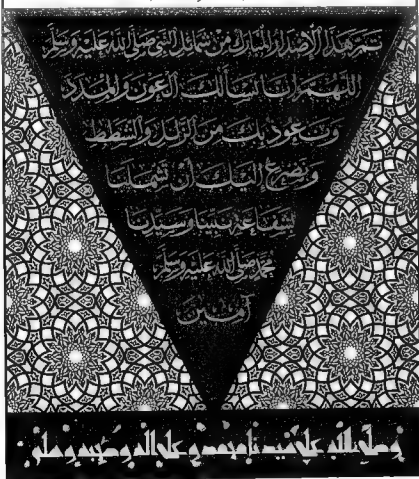 تم هذا الإصدار المبارك من شمائل النبي صلى الله عليه وسلم
اللهم إنا نسألك العون والمدد
ونعوذ بك من الزلل والشطط
ونضرع إليك أن تشملنا
بشفاعة نبينا وسيدنا
محمد صلى الله عليه وسلم
آمين
وصلى الله على سيدنا محمد وعلى آله وصحبه وسلم